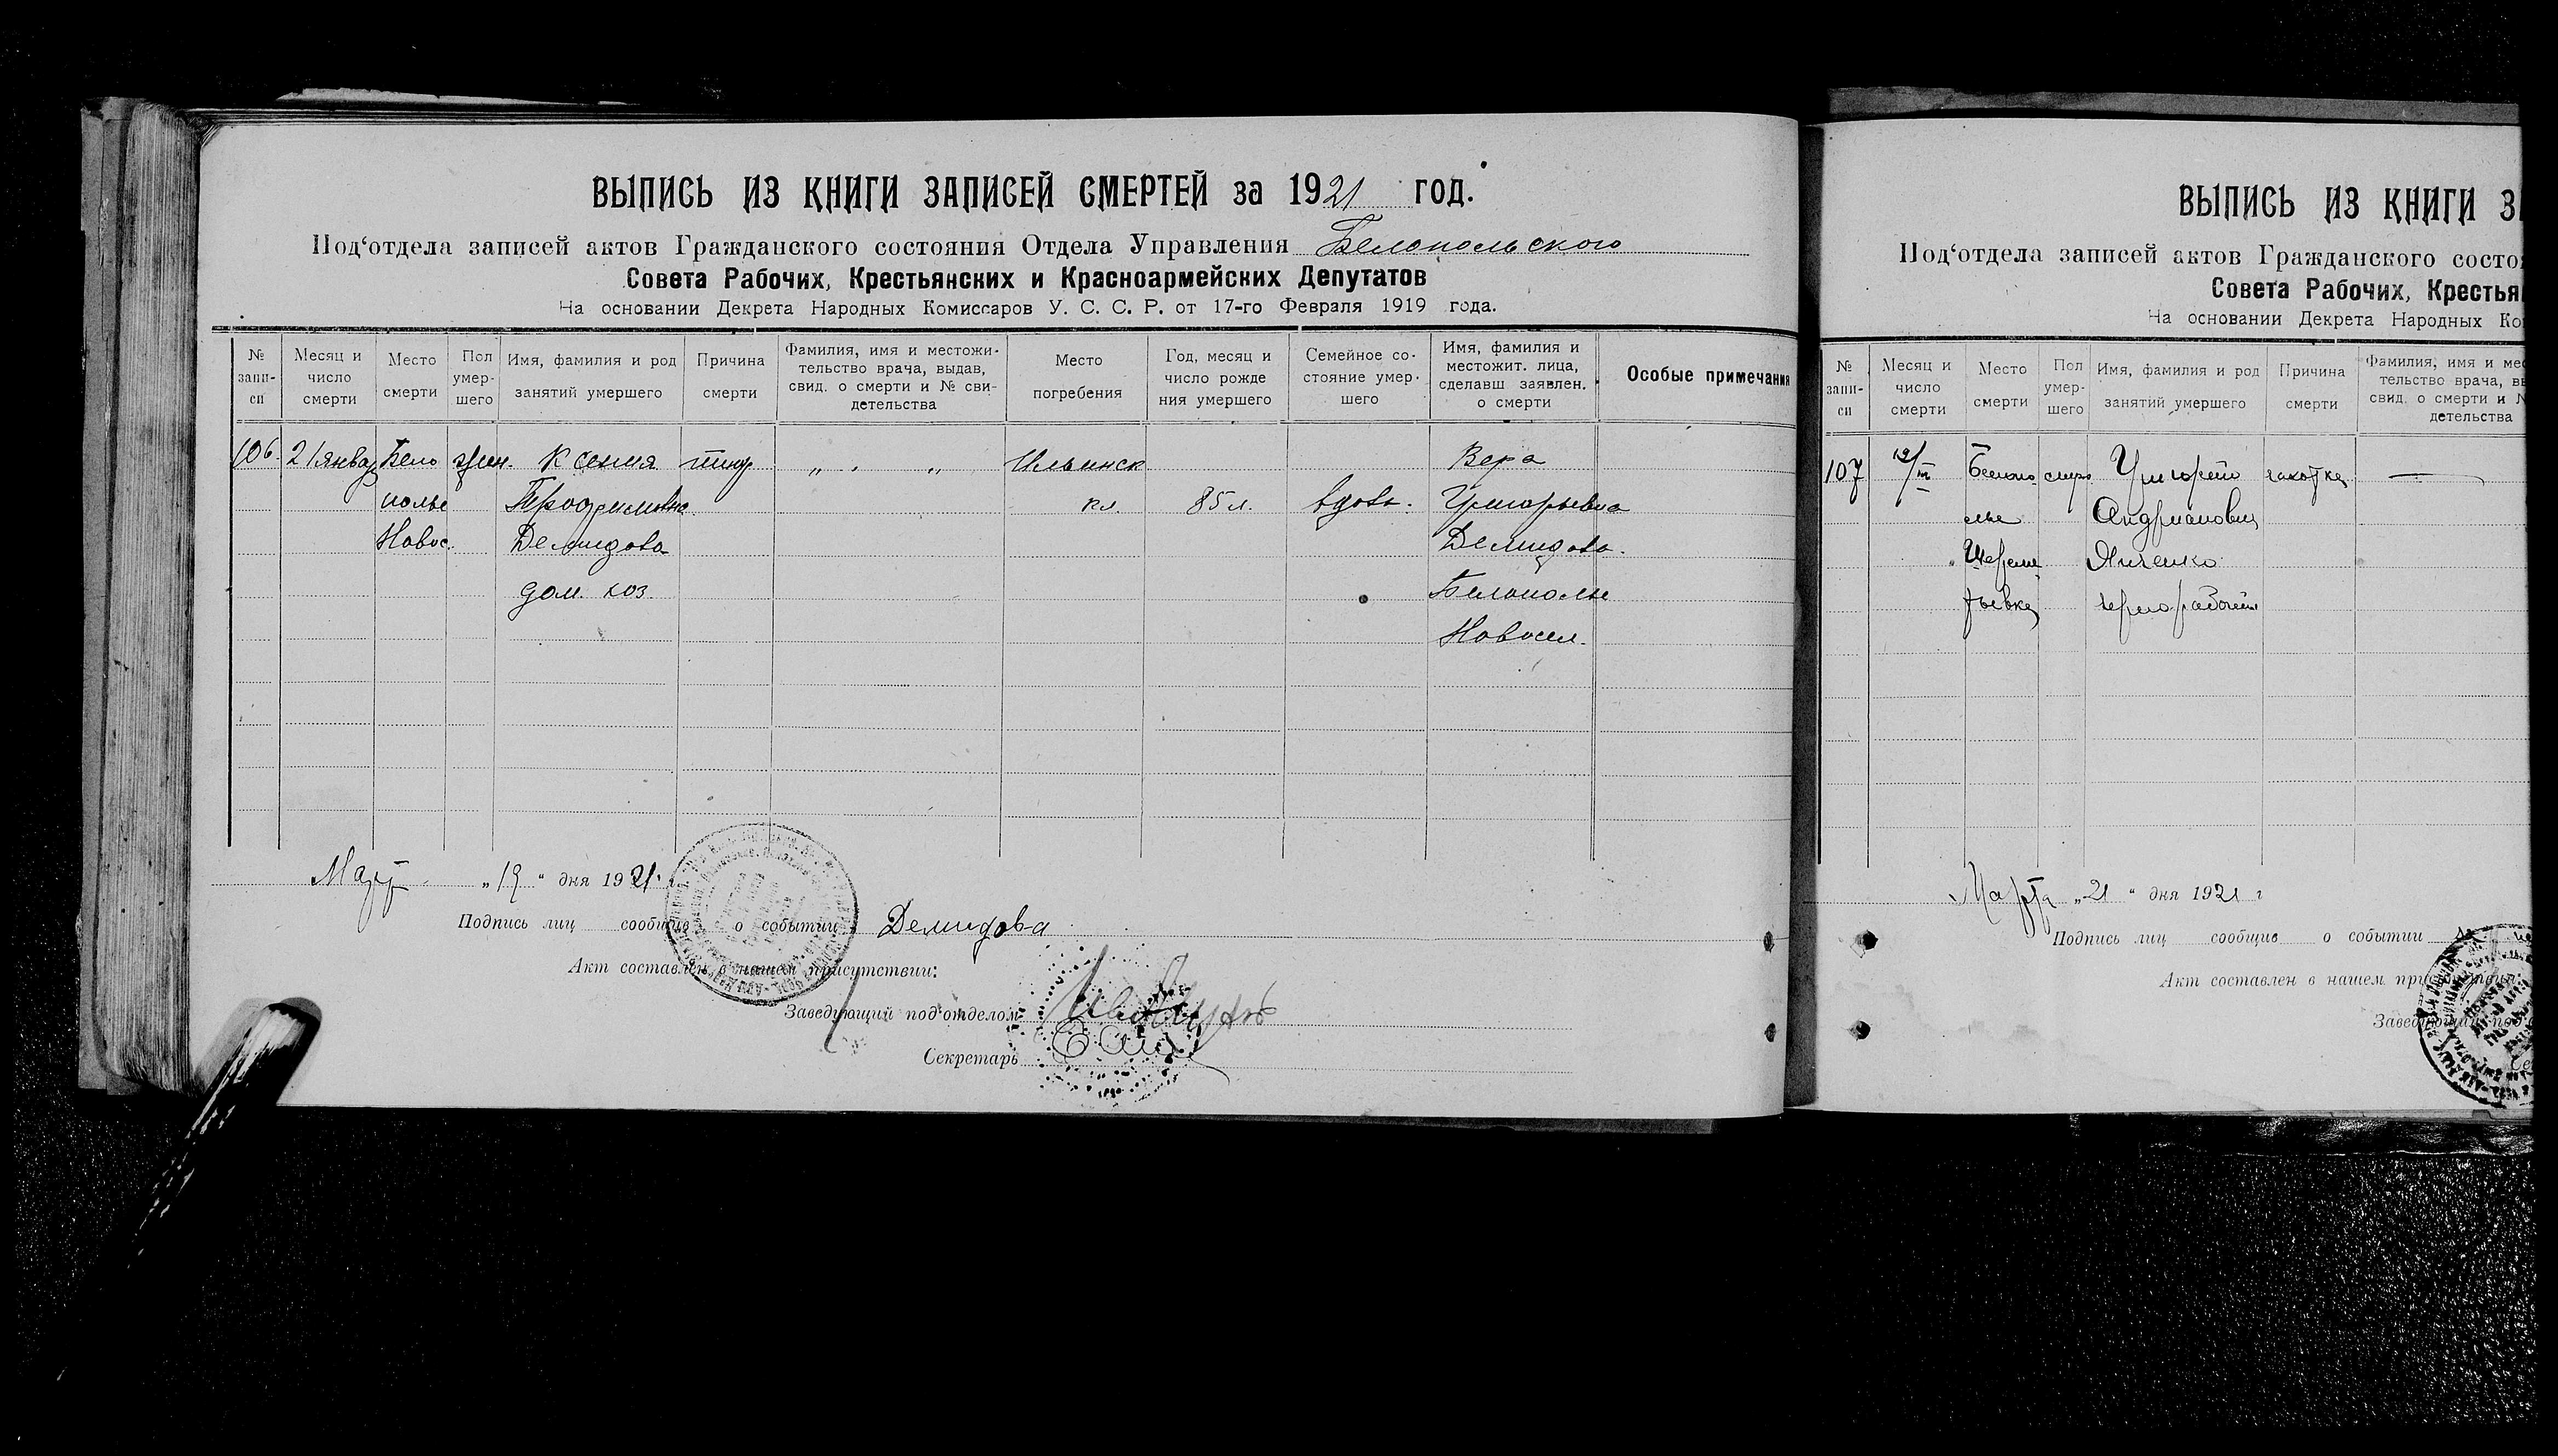 ВЫПИСЬ ИЗ КНИГИ ЗАПИСЕЙ СМЕРТЕЙ за 1921 год.
Под‘отдела записей актов Гражданского состояния Отдела Управления Белопольского
Совета Рабочих, Крестьянских и Красноармейских Депутатов
На основании Декрета Народных Комиссаров У. С. С. Р. от 17-го Февраля 1919 года.
№ запи-си
Месяц и число смерти
Место смерти
Пол умер-шего
Имя, фамилия и род занятий умершего
Причина смерти
Фамилия, имя и местожи-тельство врача, выдав, свид. о смерти и № сви-детельства
Место погребения
Год, месяц и число рожде ния умершего
Семейное со-стояние умер-шего
Имя, фамилия и местожит. лица, сделавш заявлен. о смерти
Особые примечания
106. 21 январ Бело жен. Ксения „ „ Ильинск Вера
полье Трофимовна кл. 85 л. вдова. Григорьевна
Новос. Демидова Демидова.
дом. хоз. Белополье
Новосел.
Март „19“ дня 1921.
Подпись лиц сообщив о событии Демидова
Акт составлен в нашем присутствии:
Заведующий под‘отделом
Секретарь
ВЫПИСЬ ИЗ КНИГИ
Под‘отдела записей актов Гражданского состо
Совета Рабочих, Крестья
На основании Декрета Народных Ко
№ запи-си
Месяц и число смерти
Место смерти
Пол умер-шего
Имя, фамилия и род занятий умершего
Причина смерти
Фамилия, имя и мес тельство врача, вы свид. о смерти и № детельства
107 Белопо Григорий чахотка
лье Андрианович
чернорабочий
Марта „21“ дня 1921 г
Подпись лиц сообщив о событии
Акт составлен в нашем при
Заведующий под